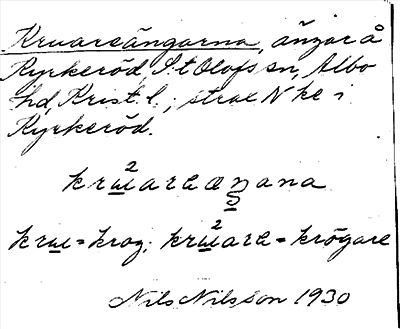 Kruareängarna, ängar å
Kyrkeröd, S:t Olofs sn, Albo
hd, Krist. l.; strax N ke i
Kyrkeröd.
krɯ²araæŋana
krɯ=krog; krɯ²ara=krögare
Nils Nilsson 1930